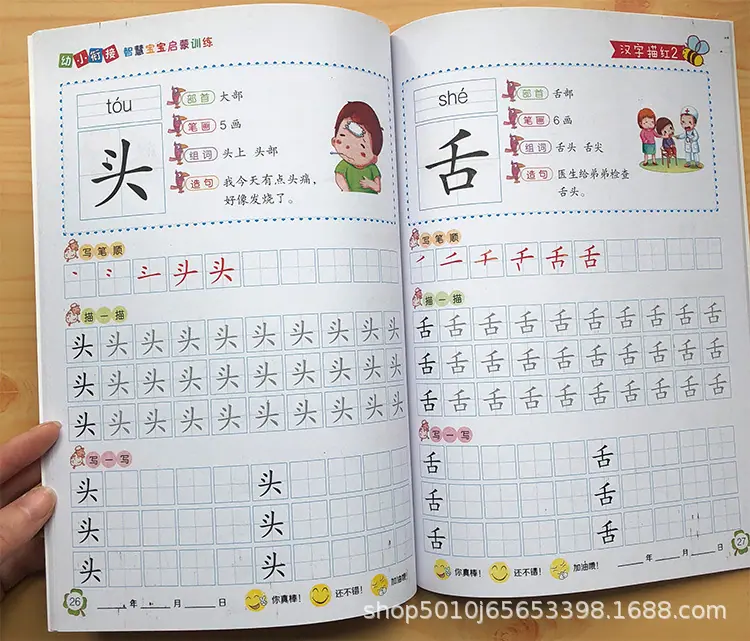 幼小衔接 智慧宝宝启蒙训练
tóu
头
部首 大部
笔画 5画
组词 头上 头部
造句 我今天有点头痛，
好像发烧了。
写笔顺
丶 头 头
描一描
头 头 头 头 头 头 头 头 头 头
头 头 头 头 头 头 头 头 头 头
头 头 头 头 头 头 头 头 头 头
写一写
头 头
头 头
头 头
26 年 月 日 你真棒！ 还不错！ 加油噢！
汉字描红2
shé
舌
部首 舌部
笔画 6画
组词 舌头 舌尖
造句 医生给弟弟检查
舌头。
写笔顺
丿 二 千 千 舌 舌
描一描
舌 舌 舌 舌 舌 舌 舌 舌 舌 舌
舌 舌 舌 舌 舌 舌 舌 舌 舌 舌
舌 舌 舌 舌 舌 舌 舌 舌 舌 舌
写一写
舌 舌
舌 舌
舌 舌
你真棒！ 还不错！ 加油噢！ 年 月 日 27
shop5010j65653398.1688.com